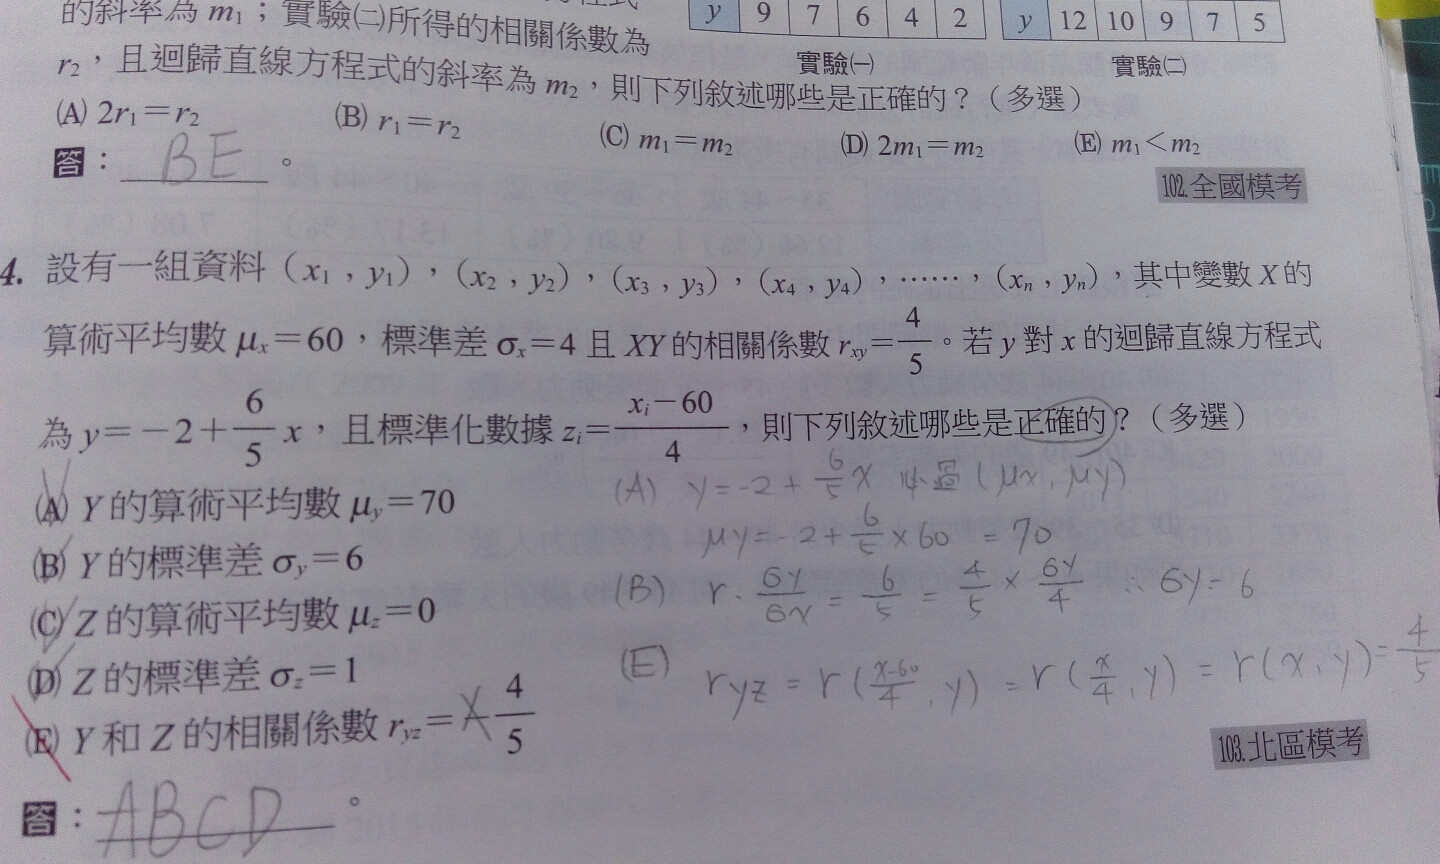 的斜率為 m₁；實驗㈡所得的相關係數為
y 9 7 6 4 2
y 12 10 9 7 5
實驗㈠
實驗㈡
r₂，且迴歸直線方程式的斜率為 m₂，則下列敘述哪些是正確的？（多選）
(A) 2r₁＝r₂ (B) r₁＝r₂ (C) m₁＝m₂ (D) 2m₁＝m₂ (E) m₁＜m₂
答：BE。
102.全國模考
4. 設有一組資料（x₁，y₁），（x₂，y₂），（x₃，y₃），（x₄，y₄），……，（xₙ，yₙ），其中變數 X 的
算術平均數 μₓ＝60，標準差 σₓ＝4 且 XY 的相關係數 r_xy＝4/5。若 y 對 x 的迴歸直線方程式
為 y＝－2＋6/5 x，且標準化數據 zᵢ＝(xᵢ－60)/4，則下列敘述哪些是正確的？（多選）
(A) Y 的算術平均數 μ_y＝70
(B) Y 的標準差 σ_y＝6
(C) Z 的算術平均數 μ_z＝0
(D) Z 的標準差 σ_z＝1
(E) Y 和 Z 的相關係數 r_yz＝4/5
(A) y=-2+6/5 x 必過 (μx, μy)
μy=-2+6/5×60 =70
(B) r·σy/σx = 6/5 = 4/5 × σy/4 ∴σy=6
(E) ryz = r(x-60/4, y) = r(x/4, y) = r(x, y)=4/5
103.北區模考
答：ABCD。